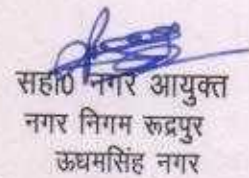 सहा0 नगर आयुक्त
नगर निगम रूद्रपुर
ऊधमसिंह नगर